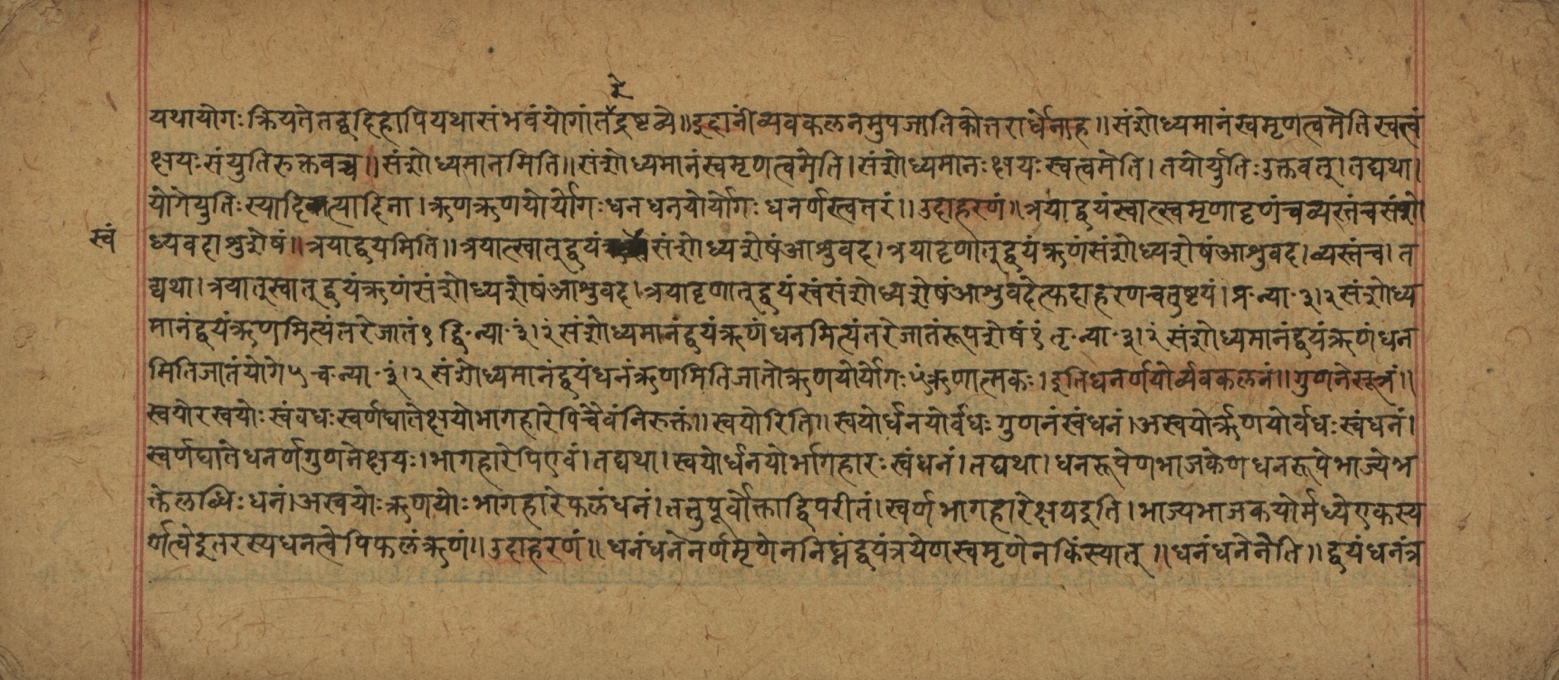 रे
यथायोगः क्रियतेतद्वदिहापियथासंभवंयोगांतँद्रष्टव्ये॥इदानींव्यवकलनमुपजातिकोत्तरार्धेनाह॥संशोध्यमानंस्वमृणत्वमेतिस्वत्वं
क्षयःसंयुतिरुक्तवच्च॥संशोध्यमानमिति॥संशोध्यमानंस्वमृणत्वमेति।संशोध्यमानःक्षयःस्वत्वमेति।तयोर्युतिःउक्तवत्।तद्यथा।
योगेयुतिःस्यादित्यादिना।ऋणऋणयोर्योगःधनधनयोर्योगःधनर्णस्त्वंतरं॥उदाहरणं॥त्रयाद्द्वयंस्वात्स्वमृणादृणंचव्यस्तंचसंशो
ध्यवदाशुशेषं॥त्रयाद्द्वयमिति॥त्रयात्स्वात्द्वयं संशोध्यशेषंआशुवद।त्रयादृणात्द्वयंऋणंसंशोध्यशेषंआशुवद।व्यस्तंच।त
स्वं
द्यथा।त्रयात्स्वात्द्वयंऋणंसंशोध्यशेषंआशुवद।त्रयादृणात्द्वयंस्वंसंशोध्यशेषंआशुवदेत्युदाहरणचतुष्टयं।प्र·न्या·३।२संशोध्य
मानंद्वयंऋणमित्यंतरेजातं१द्वि·न्या·३ं।२ंसंशोध्यमानंद्वयंऋणंधनमित्यंतरेजातंरूपशेषं१ं तृ·न्या·३।२ंसंशोध्यमानंद्वयंऋणंधन
मितिजातंयोगे५·च·न्या·३ं।२संशोध्यमानंद्वयंधनंऋणमितिजातोऋणयोर्योगः५ंऋणात्मकः।इतिधनर्णयोर्व्यवकलनं॥गुणनेसूत्रं॥
स्वयोरस्वयोःस्वंवधःस्वर्णघातेक्षयोभागहारेपिचैवंनिरुक्तं॥स्वयोरिति॥स्वयोर्धनयोर्वधःगुणनंस्वंधनं।अस्वयोर्ऋणयोर्वधःस्वंधनं।
स्वर्णघातेधनर्णगुणनेक्षयः।भागहारेपिएवं।तद्यथा।स्वयोर्धनयोर्भागहारःस्वंधनं।तद्यथा।धनरूपेणभाजकेणधनरूपेभाज्येभ
क्तेलब्धिःधनं।अस्वयोःऋणयोःभागहारेफलंधनं।तत्तुपूर्वोक्ताद्विपरीतं।स्वर्णभागहारेक्षयइति।भाज्यभाजकयोर्मध्येएकस्य
र्णत्वेइतरस्यधनत्वेपिफलंऋणं॥उदाहरणं॥धनंधनेनर्णमृणेननिघ्नंद्वयंत्रयेणस्वमृणेनकिंस्यात्॥धनंधनेनेति॥द्वयंधनंत्र